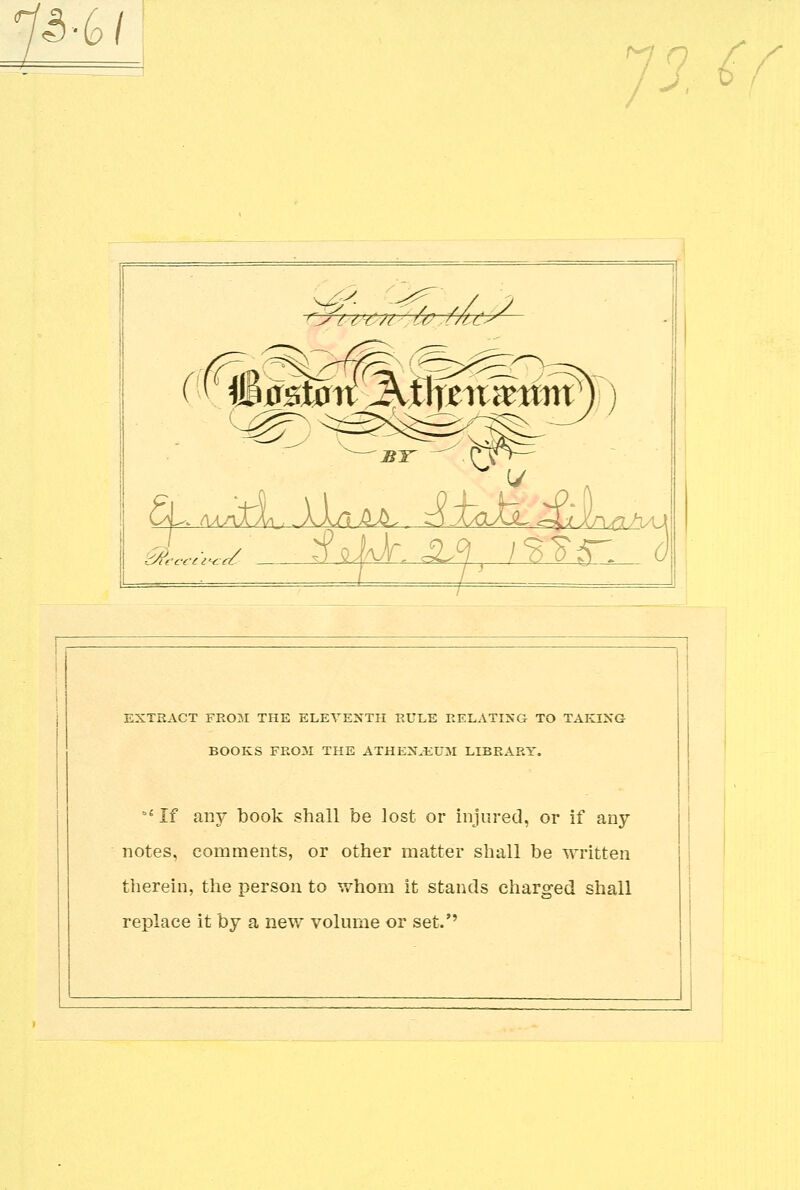 73.61
73.61
Given to the
Boston Athenæum
BY
Ex. with Mass. State Library
Received Sept. 29, 1885.
EXTRACT FROM THE ELEVENTH RULE RELATING TO TAKING
BOOKS FROM THE ATHENÆUM LIBRARY.
"If any book shall be lost or injured, or if any
notes, comments, or other matter shall be written
therein, the person to whom it stands charged shall
replace it by a new volume or set."